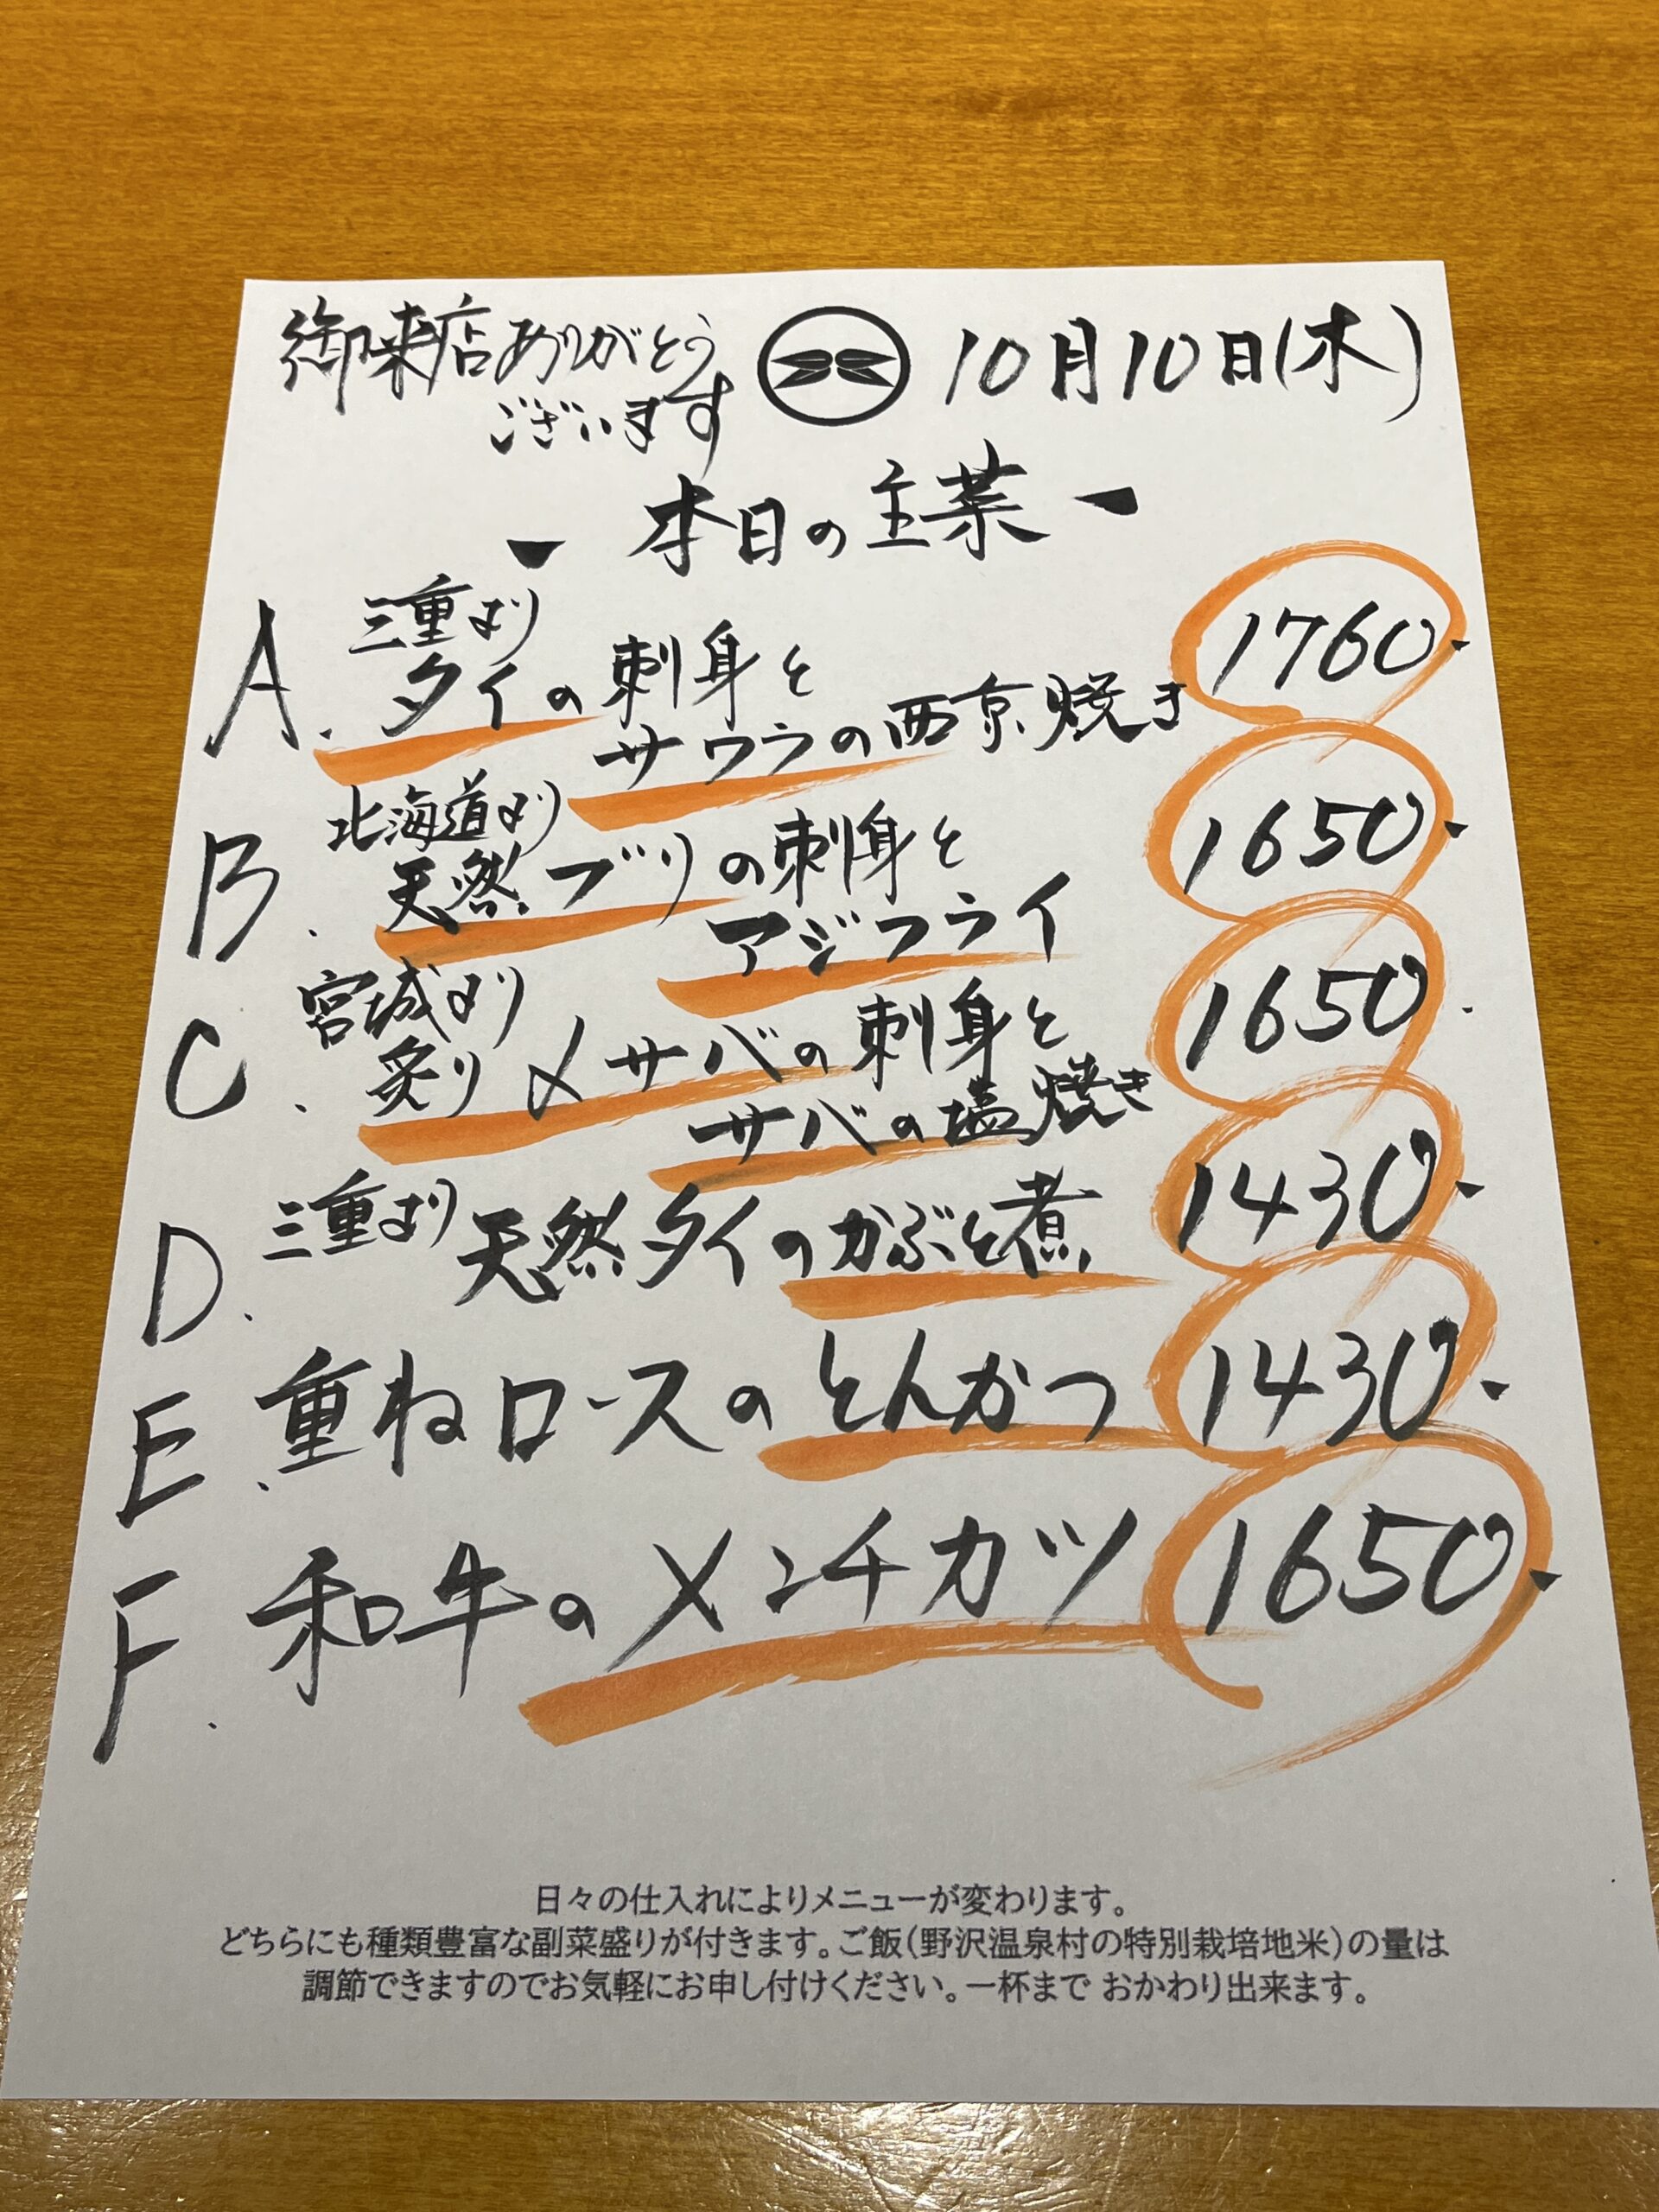 御来店ありがとう
ございます
10月10日(木)
- 本日の主菜 -
A. 三重より
タイの刺身と
サワラの西京焼き
1760.
B. 北海道より
天然ブリの刺身と
アジフライ
1650.
C. 宮城より
炙り〆サバの刺身と
サバの塩焼き
1650.
D. 三重より 天然タイのかぶと煮 1430.
E. 重ねロースのとんかつ 1430.
F. 和牛のメンチカツ 1650.
日々の仕入れによりメニューが変わります。
どちらにも種類豊富な副菜盛りが付きます。ご飯(野沢温泉村の特別栽培地米)の量は
調節できますのでお気軽にお申し付けください。一杯まで おかわり出来ます。